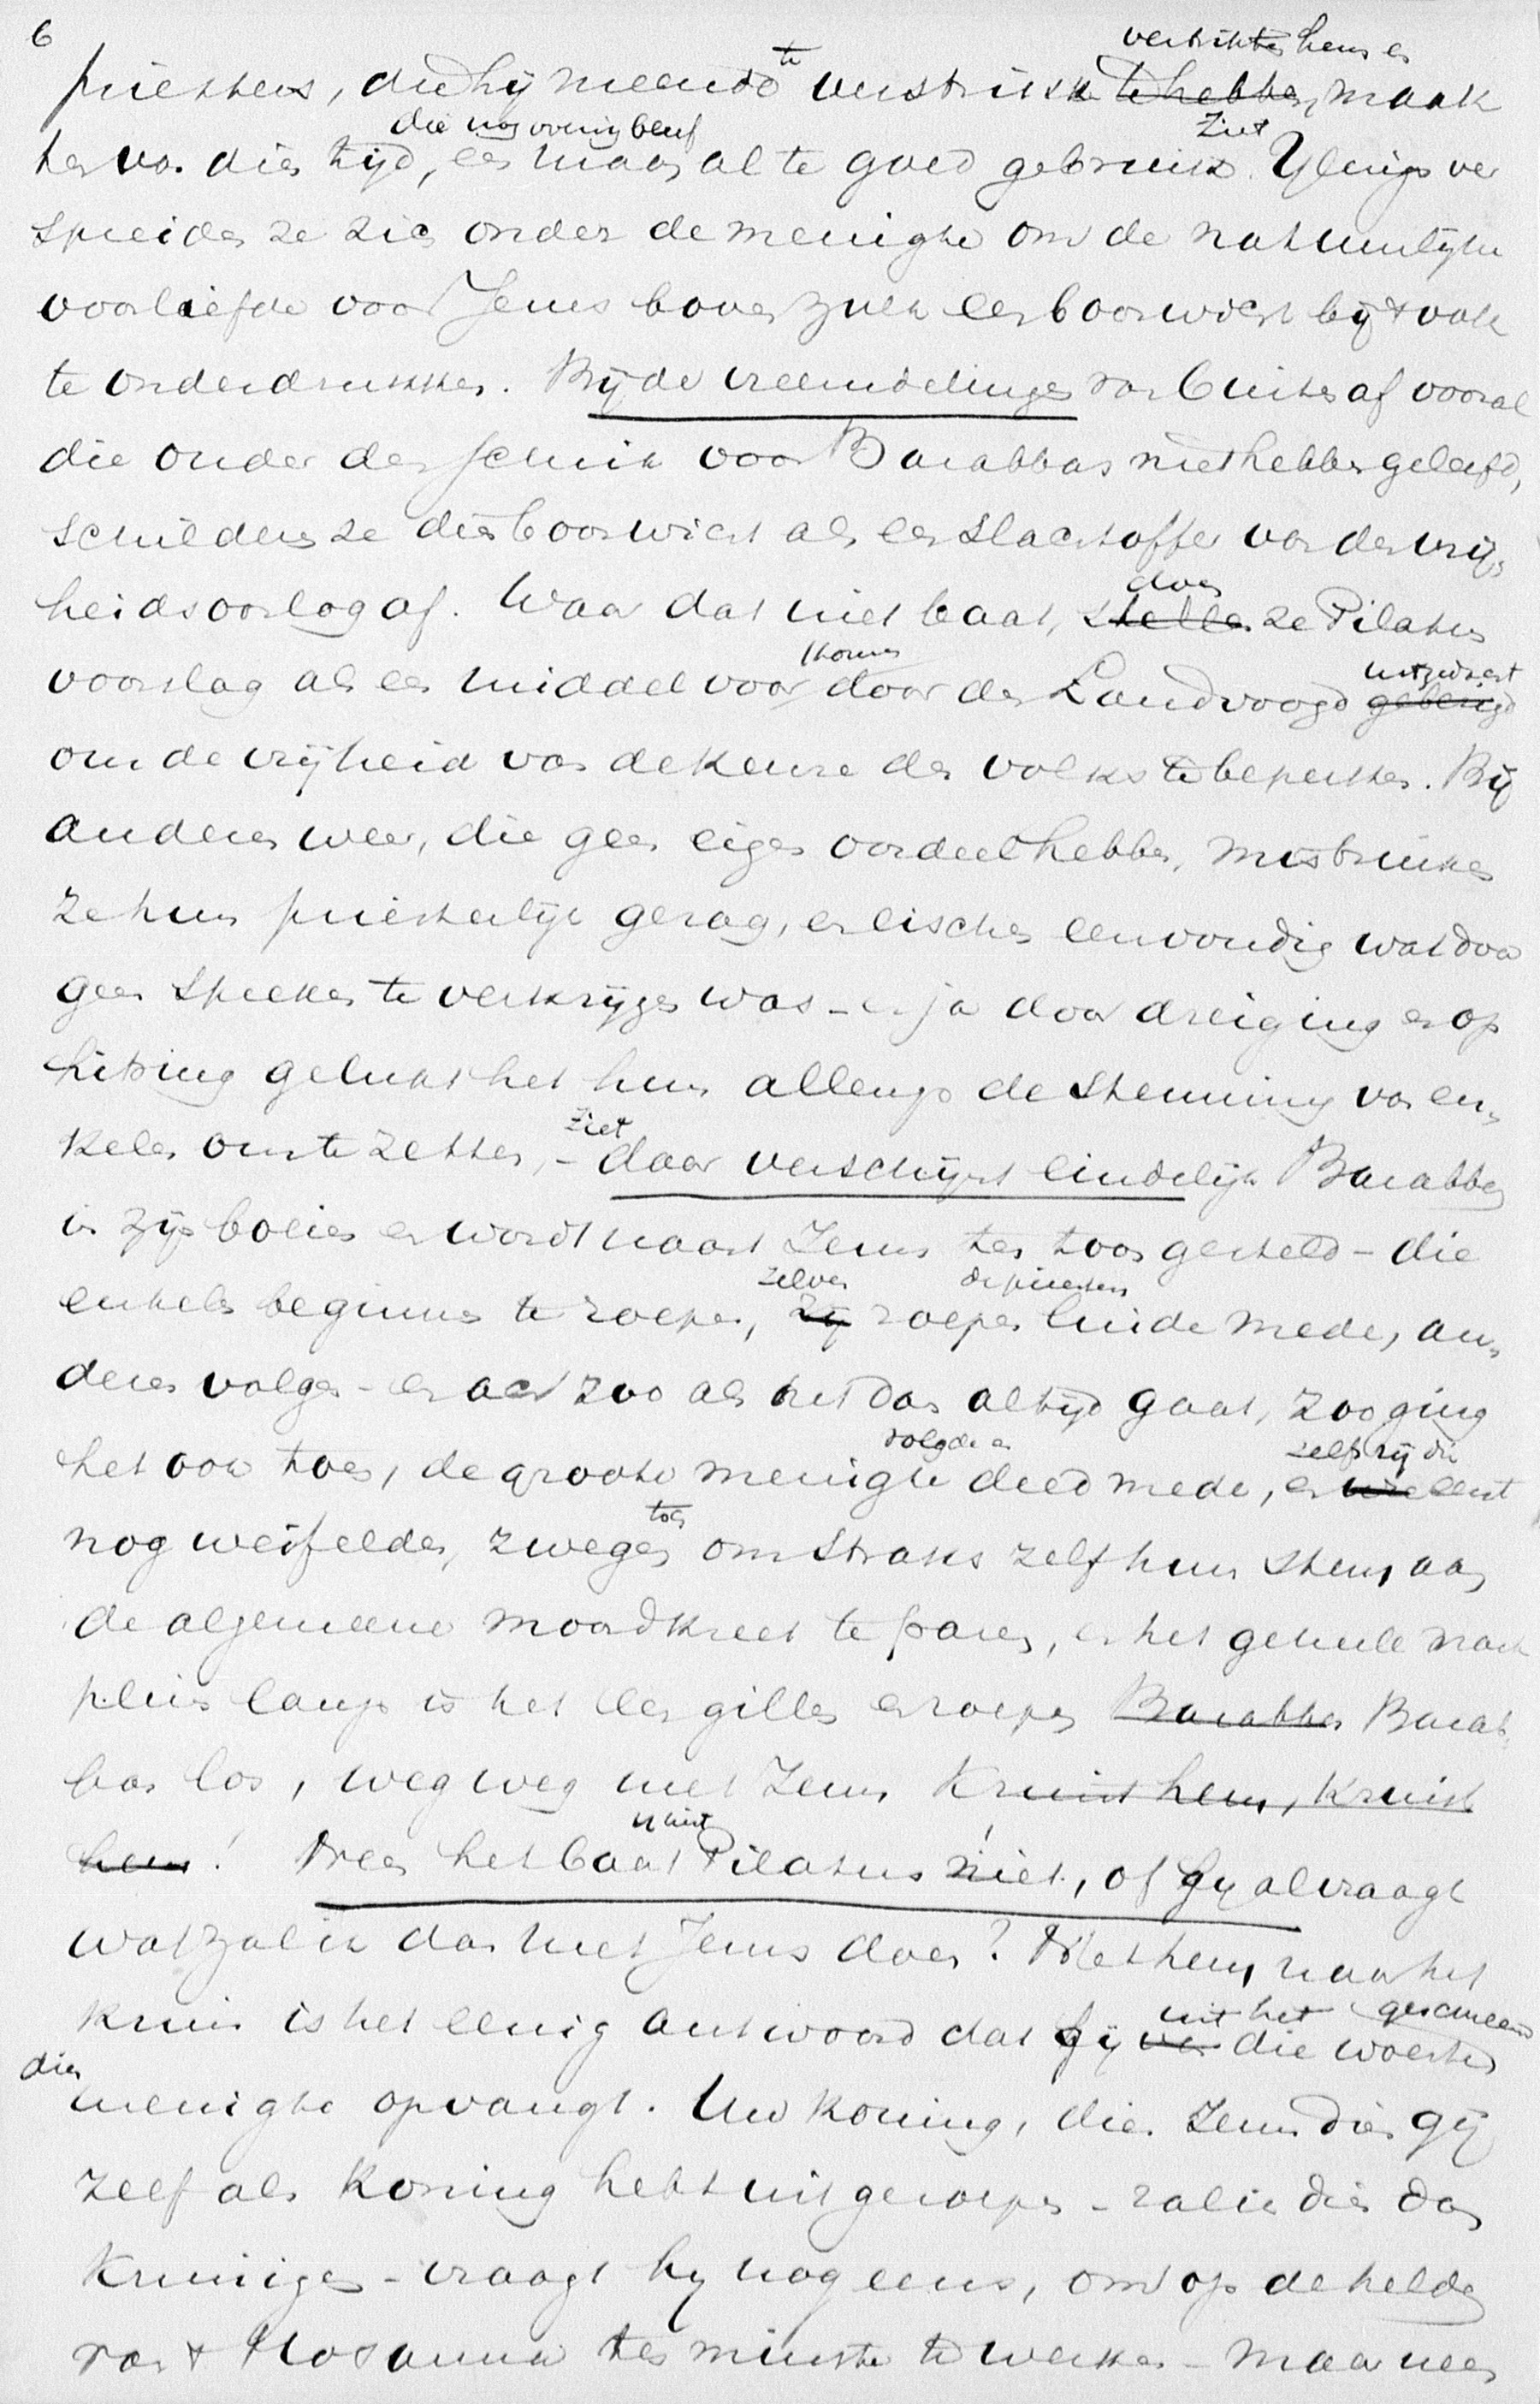 6
verstrikten hem en
priesters, die hij meende te verstrikken te hebben, maak
die nog overig bleef Ziet
ten van dien tijd, een maar al te goed gebruik. Ylings ver
spreiden ze zich onder de menigte om de natuurlijke
voorliefde voor Jezus boven zulk een booswicht bij 't volk
te onderdrukken. Bij de vreemdelingen van buiten af vooral
die onder den schrik voor Barabbas niet hebben geleefd,
schilderen ze dien booswicht als een slachtoffer van den vrij-
heidsoorlog af. Waar dat niet baat, doen
stellen ze Pilatus
voorslag als een middel voor door den Landvoogd uitgedacht
gebezigd
om de vrijheid van de keuze des volks te beperken. Bij
anderen weer, die geen eigen oordeel hebben, misbruiken
ze hun priesterlijk gezag, en eischen eenvoudig wat door
geen spreken te verkrijgen was – en ja door dreiging en op
hitsing gelukt het hun allengs de stemming van en-
kelen om te zetten, – Ziet
daar verschijnt eindelijk Barabbas
in zijn boeien en wordt naast Jezus ten toon gesteld – die
zelven de priesters
enkelen beginnen te roepen, zij roepen luide mede, an-
deren volgen – en ach zoo als het dan altijd gaat, zoo ging
volgde en zelfs zij die
het ook toen, de groote menigte deed mede, en wie eerst
toen
nog weifelden, zwegen om straks zelf hun stem aan
de algemeene moordkreet te paren, en het geheele markt
plein langs is het een gillen en roepen Barabbas Barab-
bas los, weg weg met Jezus Kruist hem, kruist
hem! Neen het baat Pilatus niet, of hij al vraagt
wat zal ik dan met Jezus doen? Met hem naar het
kruis is het eenig antwoord dat hij uit het geschreeuw
van die woeste
dier
menigte opvangt. Uw koning, dien Jezus dien gij
zelf als Koning hebt uitgeroepen – zal ik dien dan
kruisigen – vraagt hij nog eens, om op de helden
van 't Hosanna ten minste te werken – maar neen